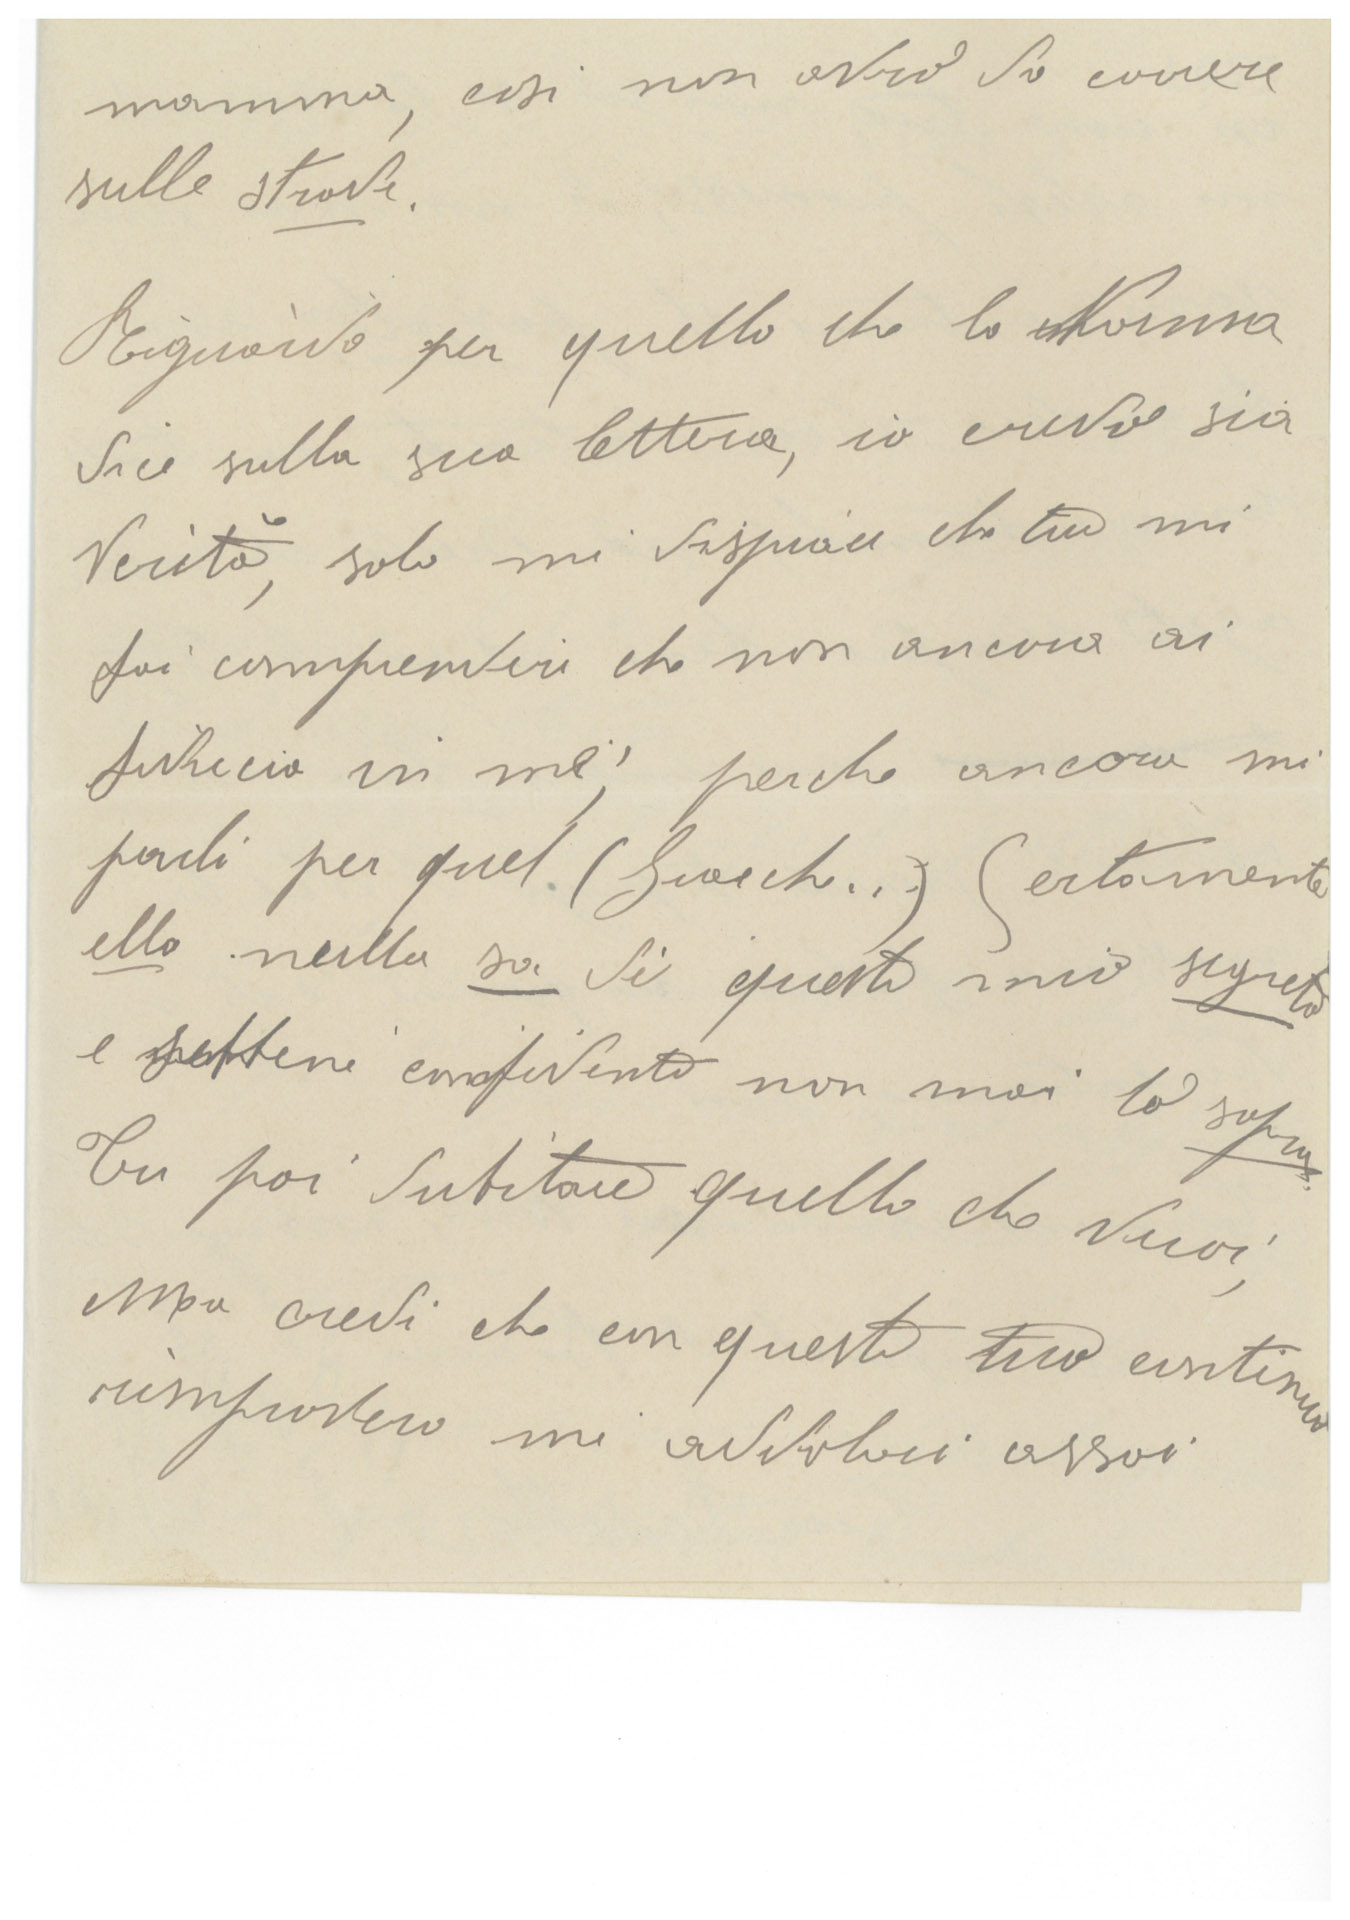 mamma, cosi non avrò da correre
sulle strade.
Riguardo per quello che la Norma
dice sulla sua lettera, io credo sia
Verità, solo mi dispiace che tu mi
fai comprendere che non ancora ai
fiducia in me; perche ancora mi
parli per quel (Giache...) Certamente
ello nulla sa di questo mio segreto
e confidente non mai lo saprà.
Tu poi dubitare quello che vuoi,
Ma credi che con questo tuo continuo
rimprovero mi addolori assai